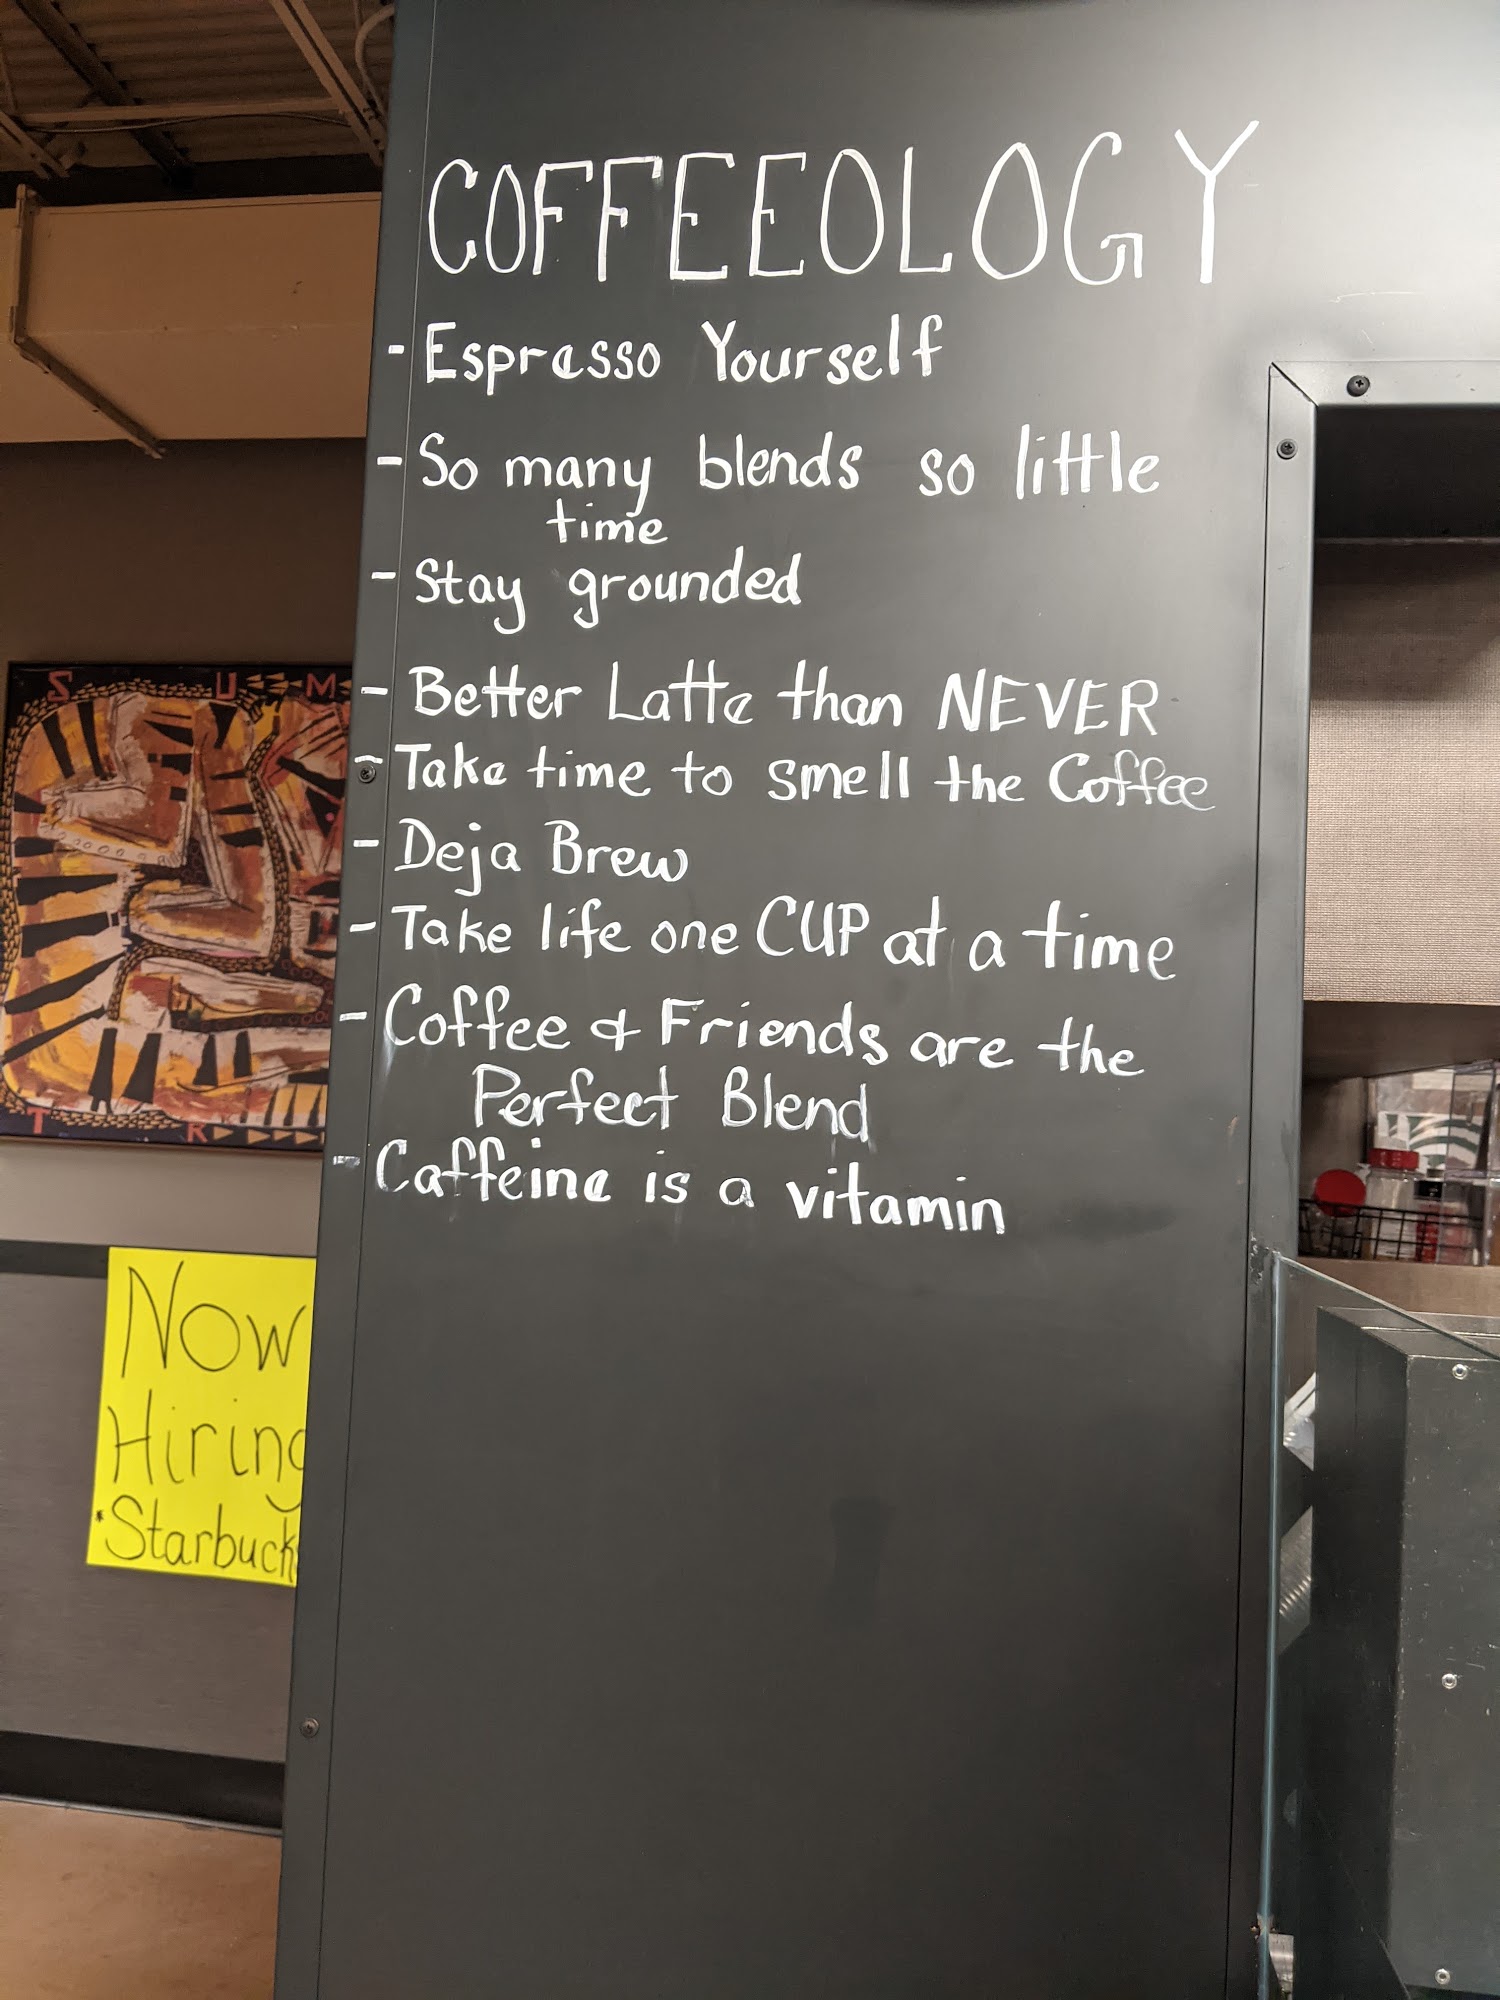 COFFEEOLOGY
- Espresso Yourself
- So many blends so little
time
- Stay grounded
- Better Latte than NEVER
- Take time to smell the Coffee
- Deja Brew
- Take life one CUP at a time
- Coffee & Friends are the
Perfect Blend
- Caffeine is a vitamin
S U M
T R
Now
Hiring
*Starbuck